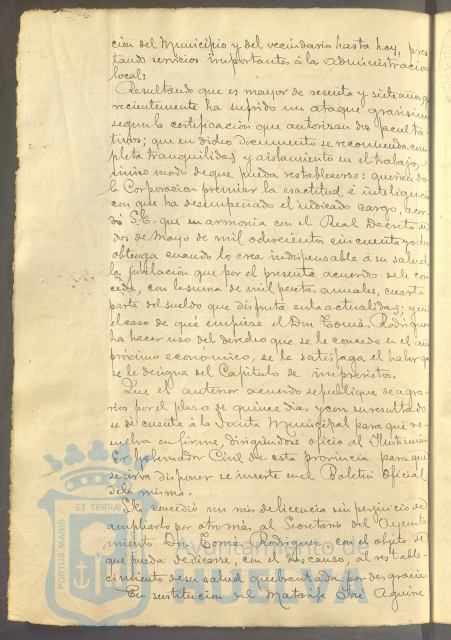 cion del Municipio y del vecindario hasta hoy, pres-
tando servicios importantes á la administracion
local:
Resultando que es mayor de sesenta y siete años, y
recientemente ha sufrido un ataque gravisimo
segun la certificación que autorizan dos faculta-
tivos; que en dicho documento se recomienda com-
pleta tranquilidad y aislamiento en el trabajo,
unico modo de que pueda restablecerse: queriendo
la Corporacion premiar la esactitud é inteligencia
con que ha desempeñado el indicado cargo, acor-
dó S.E. que en armonia con el Real Decreto de
dos de Mayo de mil ochocientos cincuenta y ocho
obtenga cuando lo crea indispensable á su salud
la jubilación que por el presente acuerdo se le con-
cede, con la suma de mil pesetas anuales, cuarta
parte del sueldo que disfruta en la actualidad; y en
el caso de que empiece el Don Tomás Rodriguez
ha hacer uso del derecho que se le concede en el año
próximo economico, se le satisfaga el haber que
se le designa del Capitulo de imprevistos.
Que el anterior acuerdo se publique de agra-
vios por el plazo de quince dias, y con su resultado
se dé cuenta á la Junta Municipal para que re-
suelva en firme, dirigiendose oficio al Ilustrisimo
Sr. Gobernador Civil de esta provincia para que
se sirva disponer se inserte en el Boletin Oficial
de la misma.
S.E. concedió un mes de licencia sin perjuicio de
ampliarlo por otro más, al Secretario del Ayunta-
miento Don Tomás Rodriguez con el objeto de
que pueda dedicarse, con el descanso, al restable-
cimiento de su salud quebrantada por desgracia.
En sustitucion del Matarife José Aguirre
PORTUS MARIS
ET TERRAE
Ayuntamiento de
HUELVA